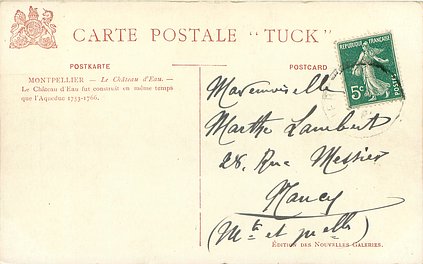 CARTE POSTALE "TUCK"
POSTKARTE
POSTCARD
MONTPELLIER – Le Château d'Eau. –
Le Château d'Eau fut construit en même temps
que l'Aqueduc 1753-1766.
RÉPUBLIQUE FRANÇAISE
5c
POSTES
Mademoiselle
Marthe Lambert
28, Rue Messier
Nancy
(Mthe et Mlle)
ÉDITION DES NOUVELLES GALERIES.